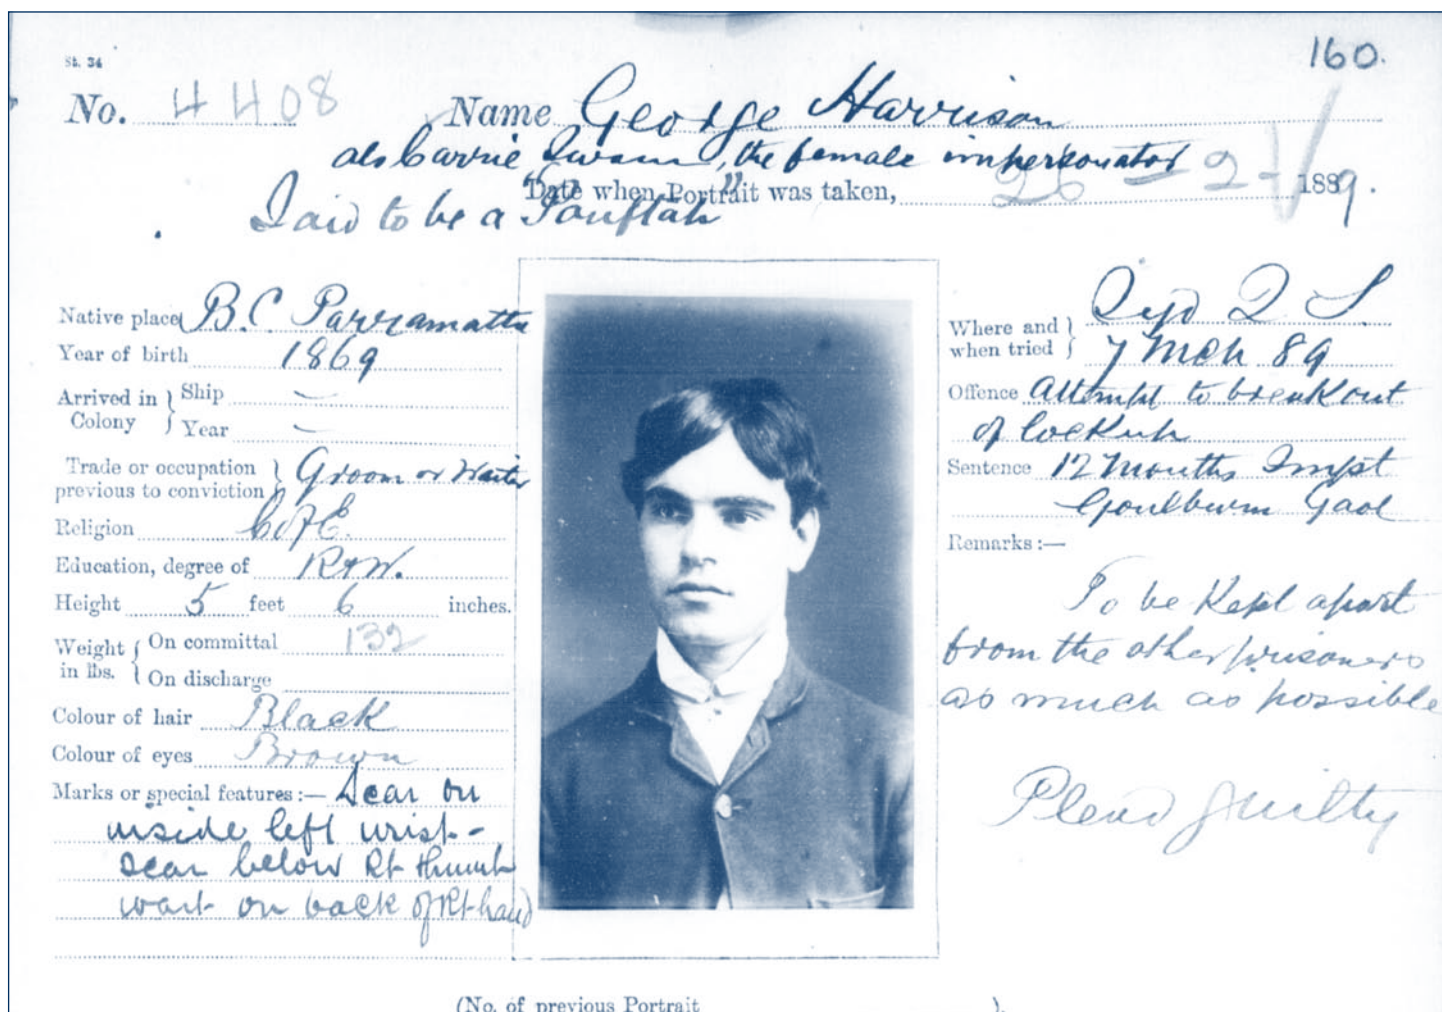 St. 34
160.
No. 4408 Name George Harrison
als Carrie Swain, the female impersonator
Date when Portrait was taken, 26-2-1889.
Said to be a "
Native place B.C. Parramatta
Year of birth 1869
Arrived in Colony } Ship —
Year —
Trade or occupation previous to conviction } Groom or Waiter
Religion C of E.
Education, degree of R & W.
Height 5 feet 6 inches.
Weight in lbs. { On committal 132
On discharge
Colour of hair Black
Colour of eyes Brown
Marks or special features:— Scar on
inside left wrist-
scar below Rt thumb
wart on back of Rt hand
Where and when tried } Syd Q S.
7 Mch 89
Offence Attempt to break out
of lockup
Sentence 12 Months Impt
Goulburn Gaol
Remarks:—
To be Kept apart
from the other prisoners
as much as possible
Plead guilty
(No. of previous Portrait ).